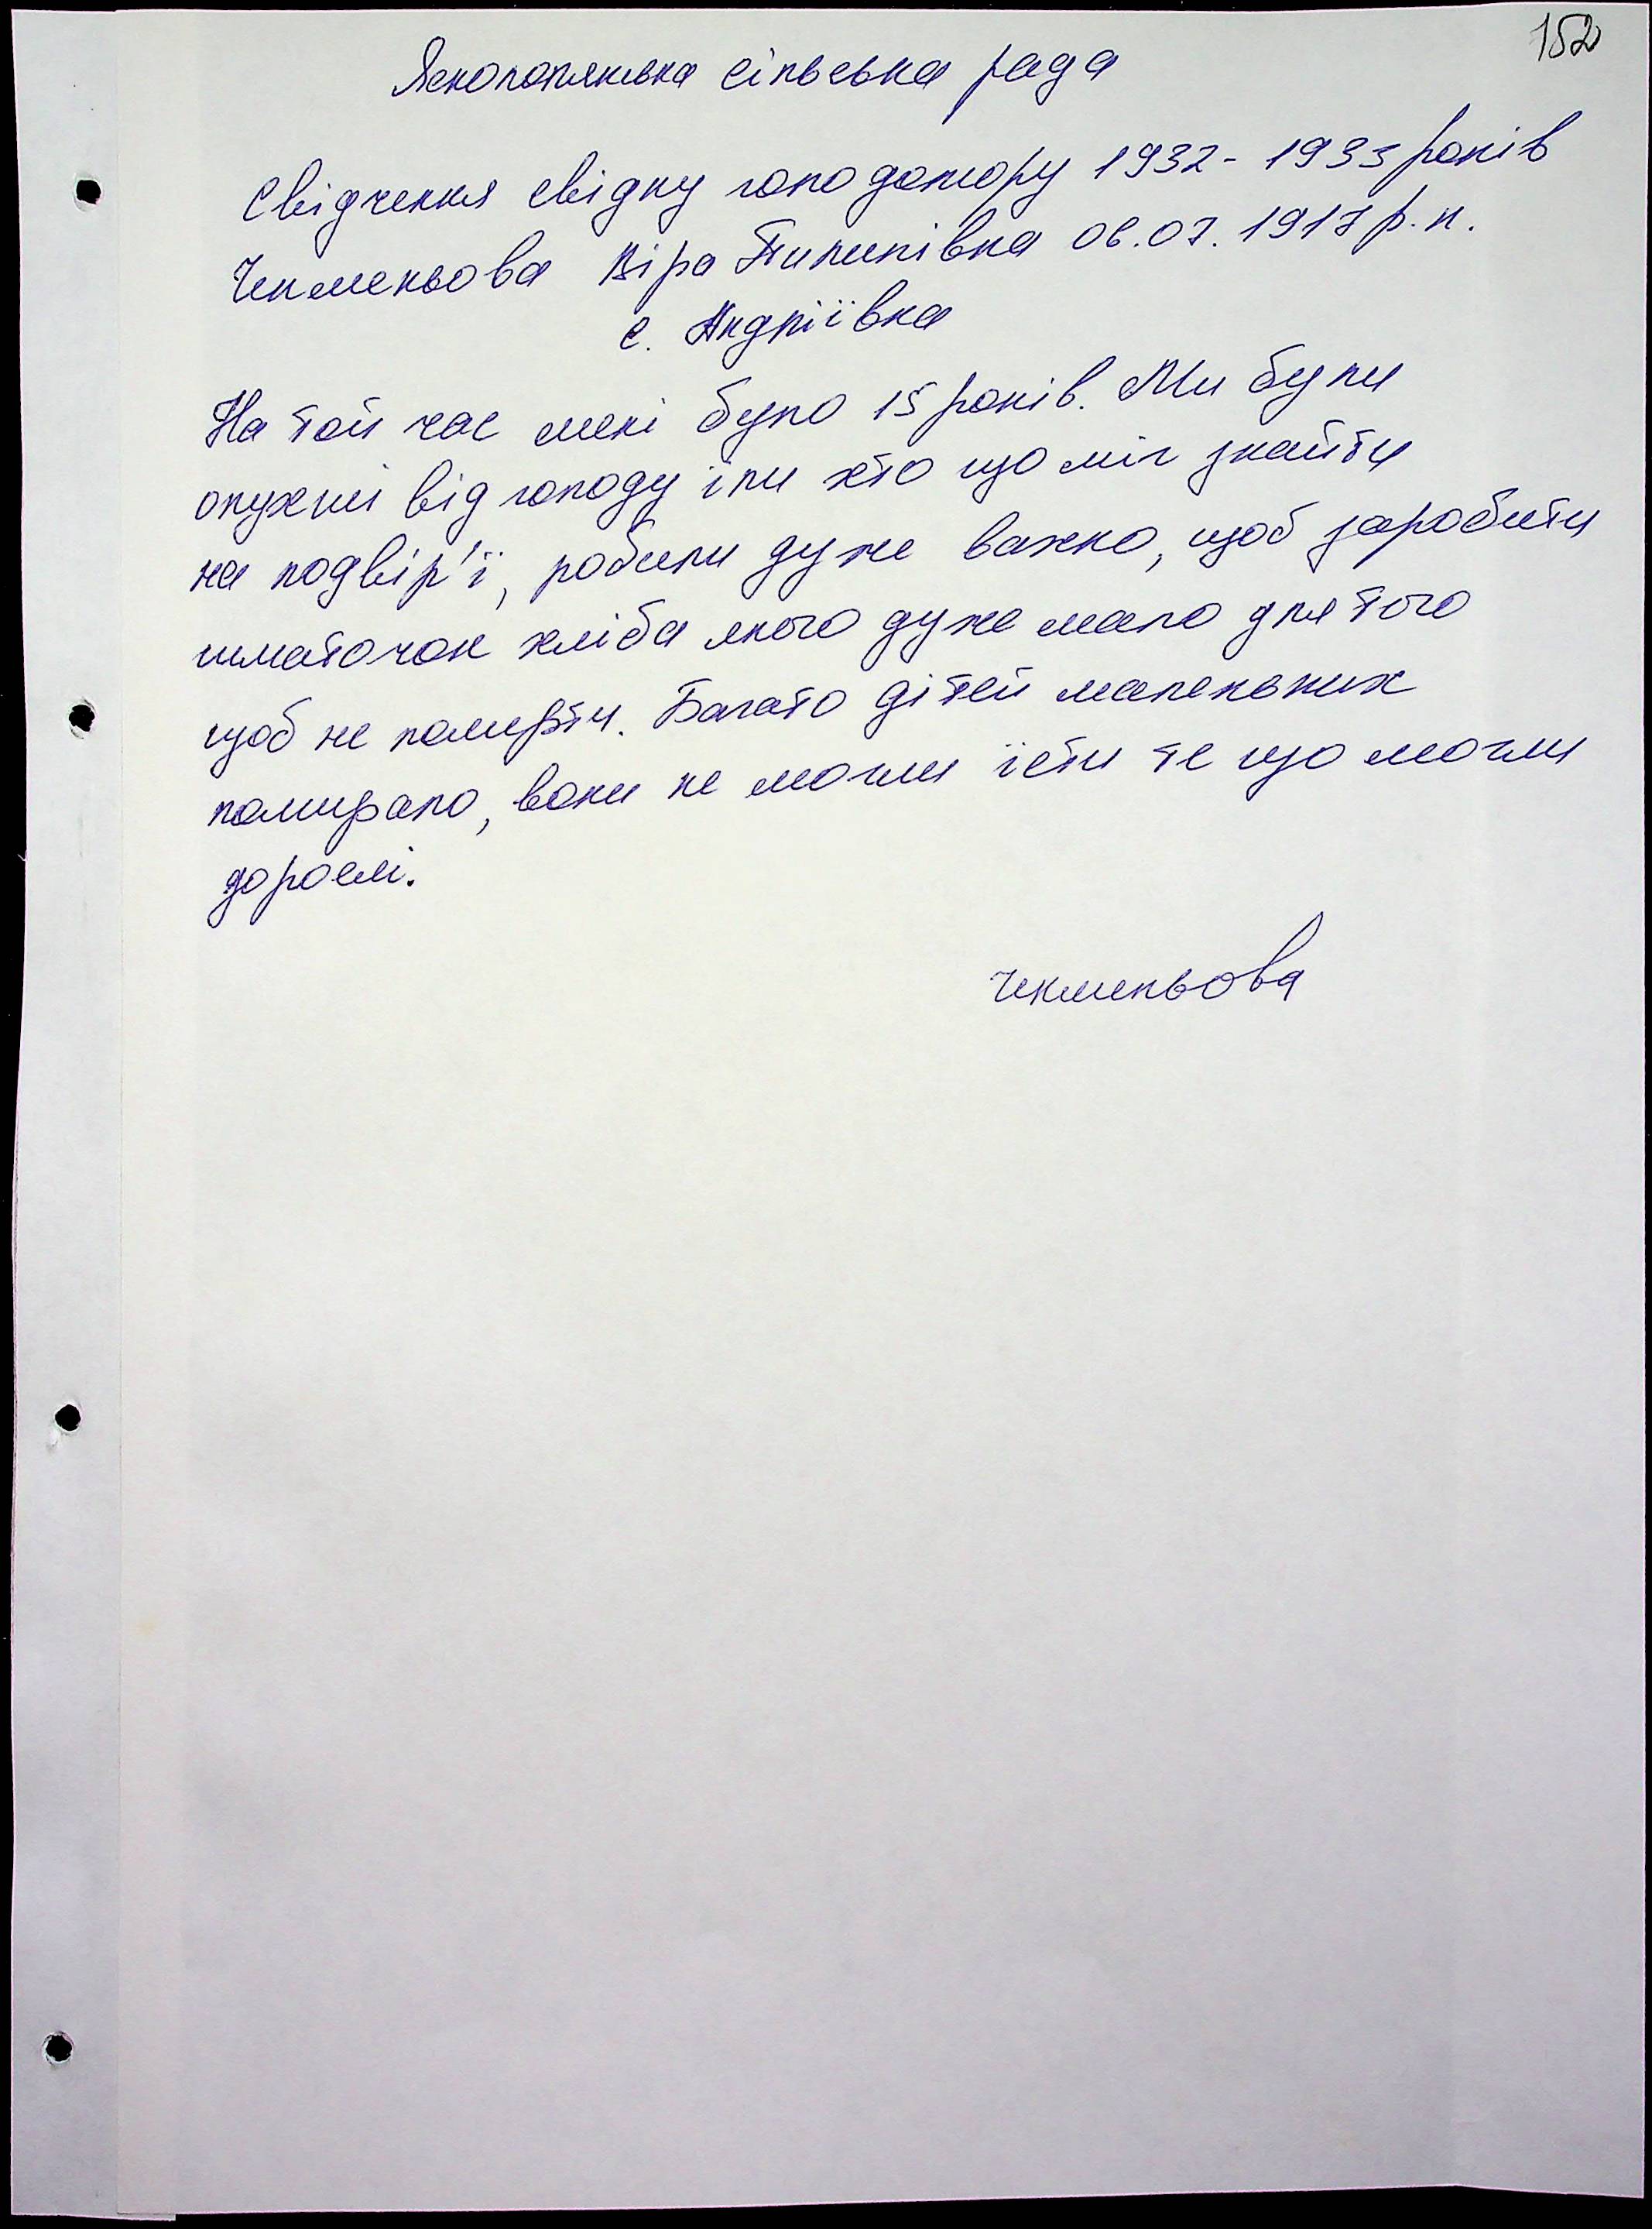 152
Яснополянська сільська рада
Свідчення свідку голодомору 1932-1933 років
Чекменьова Віра Пилипівна 06.07.1917 р.н.
с. Андріївка
На той час мені було 15 років. Ми були
опухші від голоду їли хто що міг знайти
на подвір'ї, робили дуже важко, щоб заробити
шматочок хліба якого дуже мало для того
щоб не померти. Багато дітей маленьких
помирало, вони не могли їсти те що могли
дорослі.
Чекменьова